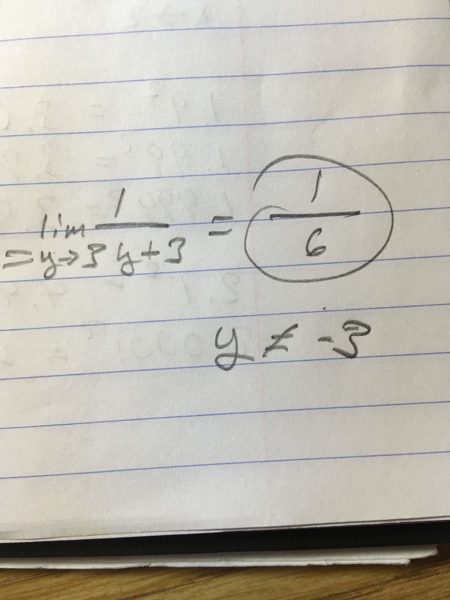 = lim y→3 1/(y+3) = 1/6
y ≠ -3